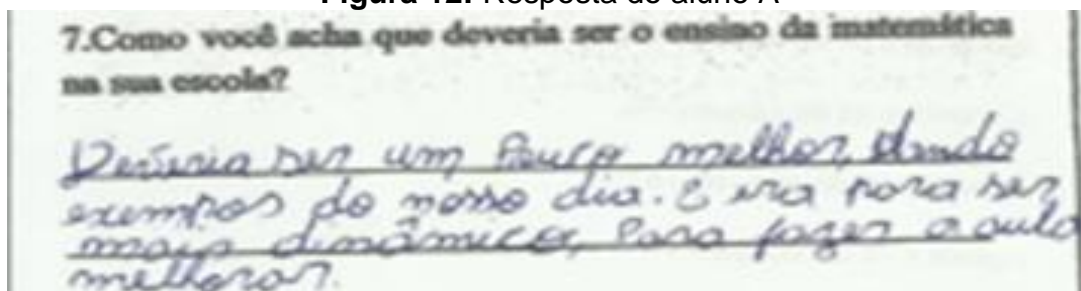 Figura 12. Resposta do aluno A
7.Como você acha que deveria ser o ensino da matemática
na sua escola?
Deveria ser um Pouco melhor, dando
exempos do nosso dia. E era para ser
mais dinâmica, Para fazer a aula
melhorar.